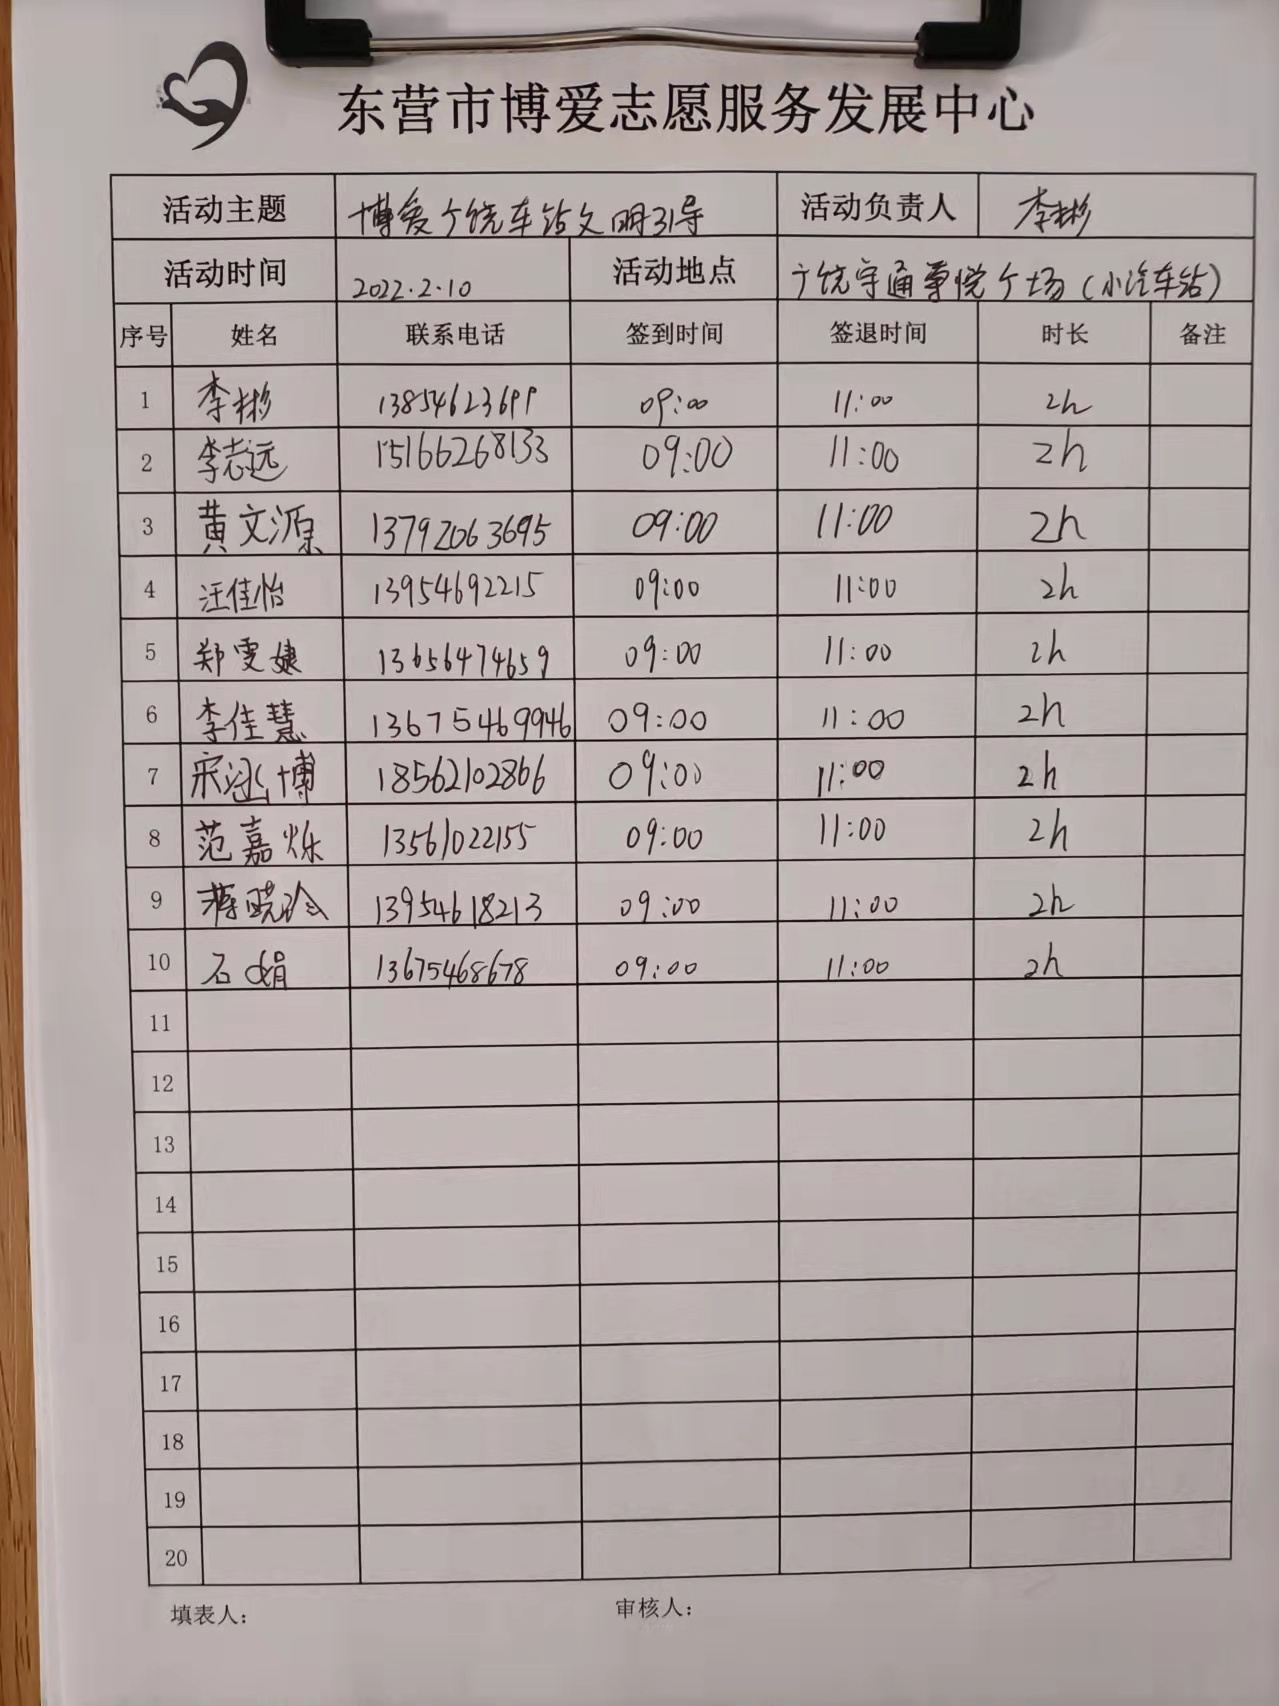 东营市博爱志愿服务发展中心
活动主题 博爱广饶车站文明引导 活动负责人 李彬
活动时间 2022.2.10 活动地点 广饶宇通尊悦广场(小汽车站)
序号 姓名 联系电话 签到时间 签退时间 时长 备注
1 李彬 13854623699 09:00 11:00 2h
2 李志远 15166268133 09:00 11:00 2h
3 黄文源 13792063695 09:00 11:00 2h
4 汪佳怡 13954692215 09:00 11:00 2h
5 郑雯婕 13656474659 09:00 11:00 2h
6 李佳慧 13675469946 09:00 11:00 2h
7 宋涵博 18562102866 09:00 11:00 2h
8 范嘉烁 13561022155 09:00 11:00 2h
9 蒋晓玲 13954618213 09:00 11:00 2h
10 石娟 13675468678 09:00 11:00 2h
11
12
13
14
15
16
17
18
19
20
填表人: 审核人: